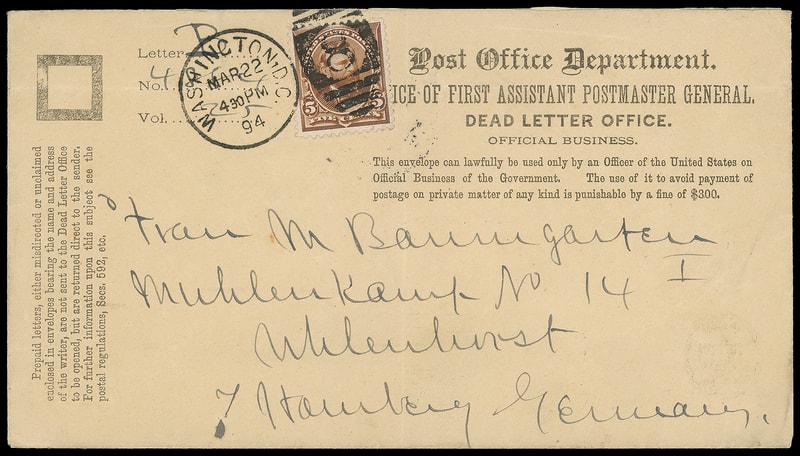 Letter
No. 4
Vol.
WASHINGTON, D.C.
MAR 22
430 PM
94
Post Office Department.
ICE OF FIRST ASSISTANT POSTMASTER GENERAL.
DEAD LETTER OFFICE.
OFFICIAL BUSINESS.
This envelope can lawfully be used only by an Officer of the United States on
Official Business of the Government. The use of it to avoid payment of
postage on private matter of any kind is punishable by a fine of $300.
Prepaid letters, either misdirected or unclaimed
enclosed in envelopes bearing the name and address
of the writer, are not sent to the Dead Letter Office
to be opened, but are returned direct to the sender.
For further information upon this subject see the
postal regulations, Secs. 592, etc.
Frau M Baumgarten
Muhlenkamp No 14 I
Uhlenhorst
Hamburg Germany.